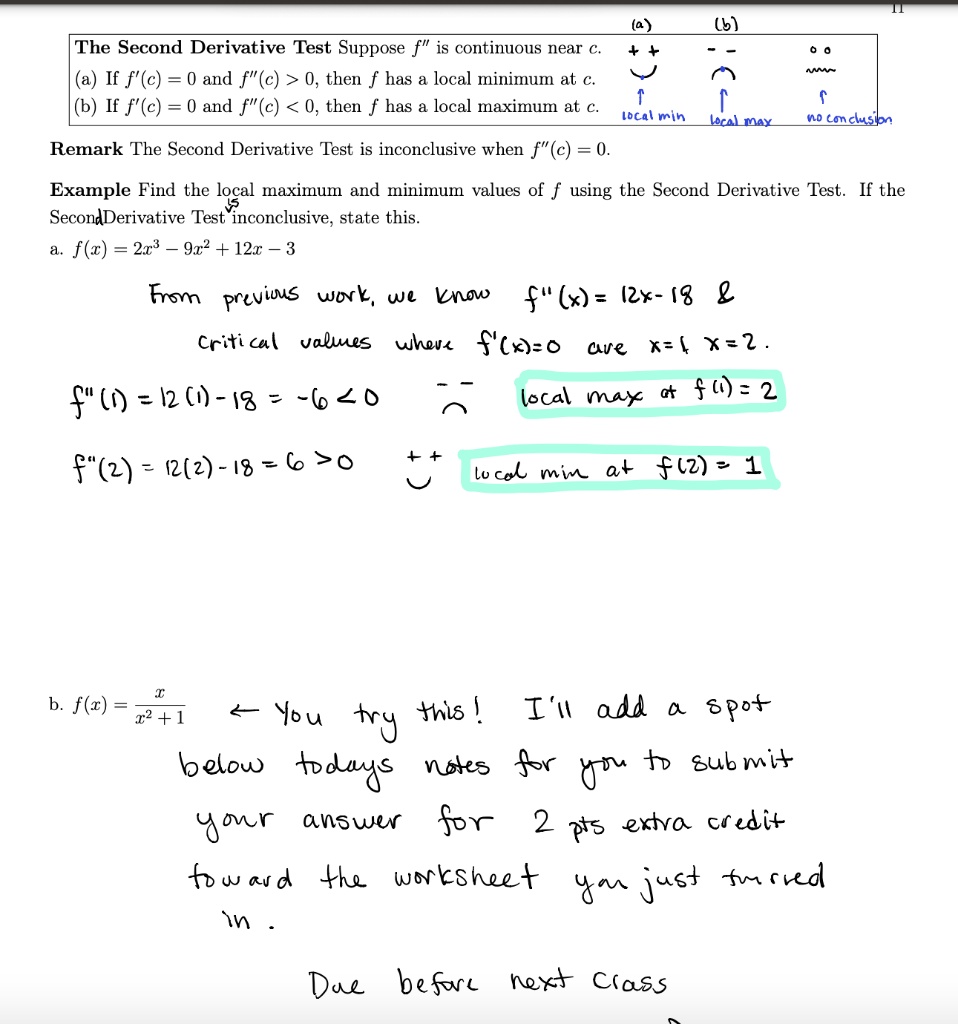 11
(a) (b)
The Second Derivative Test Suppose f″ is continuous near c. + + - - o o
(a) If f′(c) = 0 and f″(c) > 0, then f has a local minimum at c.
(b) If f′(c) = 0 and f″(c) < 0, then f has a local maximum at c.
↑ local min ↑ local max ↑ no conclusion
Remark The Second Derivative Test is inconclusive when f″(c) = 0.
Example Find the local maximum and minimum values of f using the Second Derivative Test. If the
Second Derivative Test is inconclusive, state this.
a. f(x) = 2x³ − 9x² + 12x − 3
From previous work, we know f"(x) = 12x-18 &
critical values where f'(x)=0 are x=1 x=2.
f"(1) = 12(1)-18 = -6 < 0 - - local max at f(1) = 2
f"(2) = 12(2)-18 = 6 > 0 + + local min at f(2) = 1
b. f(x) = x/(x² + 1) ← You try this! I'll add a spot
below todays notes for you to submit
your answer for 2 pts extra credit
toward the worksheet you just turned
in.
Due before next class